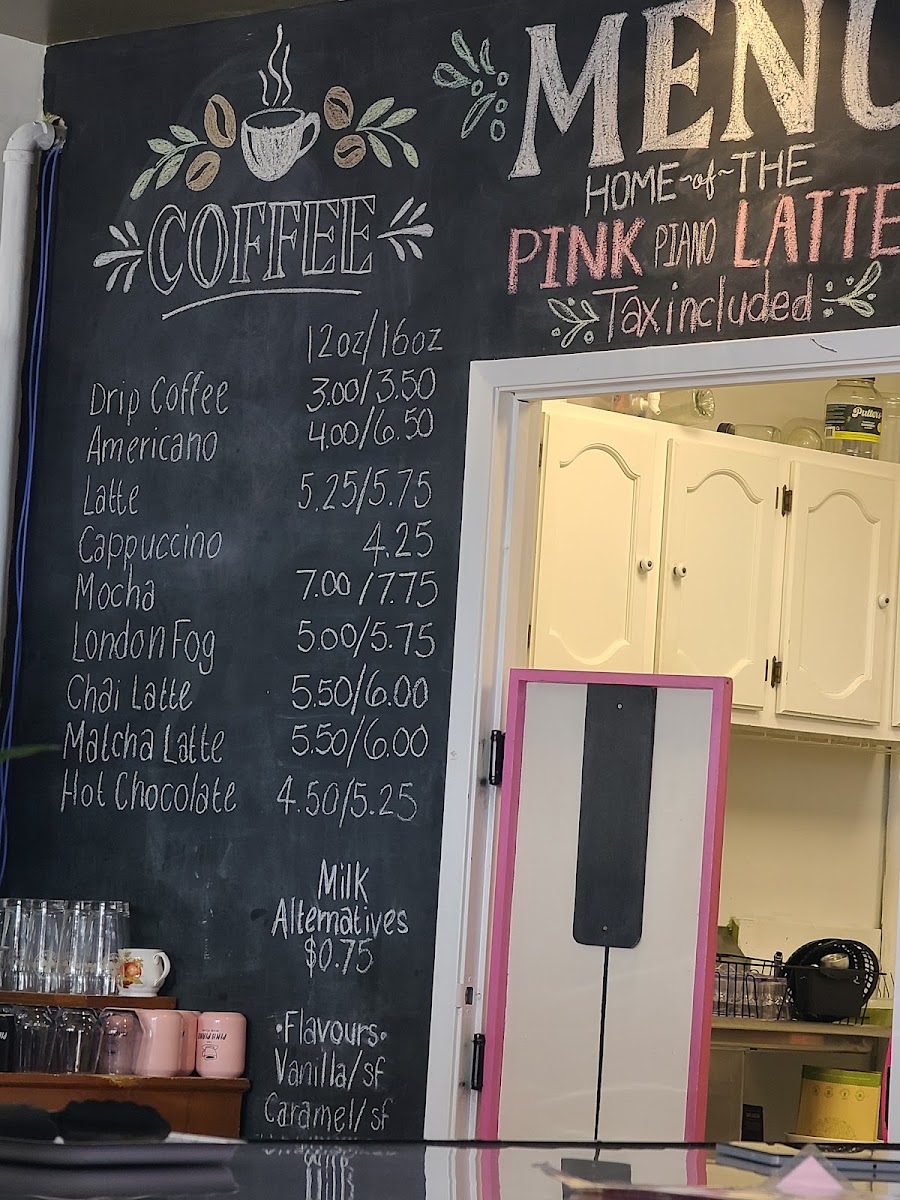 COFFEE
12oz/16oz
Drip Coffee 3.00/3.50
Americano 4.00/6.50
Latte 5.25/5.75
Cappuccino 4.25
Mocha 7.00/7.75
London Fog 5.00/5.75
Chai Latte 5.50/6.00
Matcha Latte 5.50/6.00
Hot Chocolate 4.50/5.25
Milk
Alternatives
$0.75
•Flavours•
Vanilla/sf
Caramel/sf
MENU
HOME~of~THE
PINK PIANO LATTE
Tax included